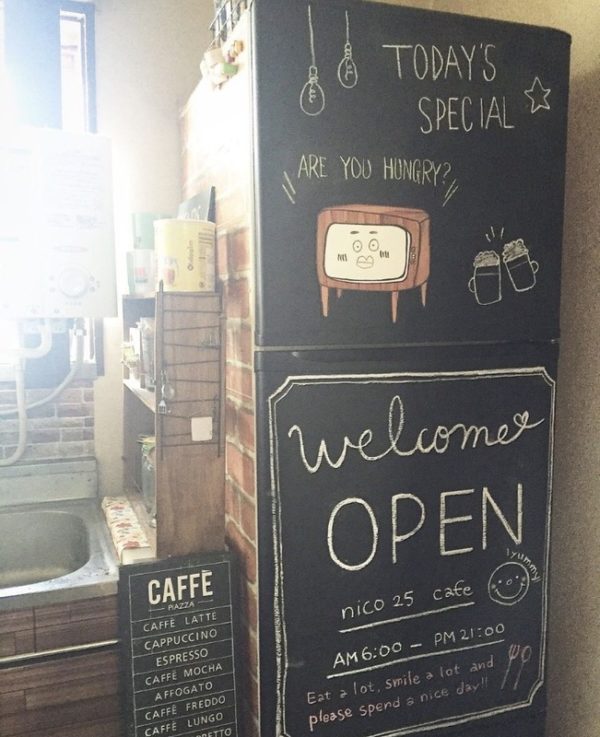 TODAY'S
SPECIAL
ARE YOU HUNGRY?
welcome
OPEN
yummy
nico 25 cafe
AM 6:00 – PM 21:00
Eat a lot, smile a lot and
please spend a nice day!!
CAFFÈ
PIAZZA
CAFFÈ LATTE
CAPPUCCINO
ESPRESSO
CAFFÈ MOCHA
AFFOGATO
CAFFÈ FREDDO
CAFFÈ LUNGO